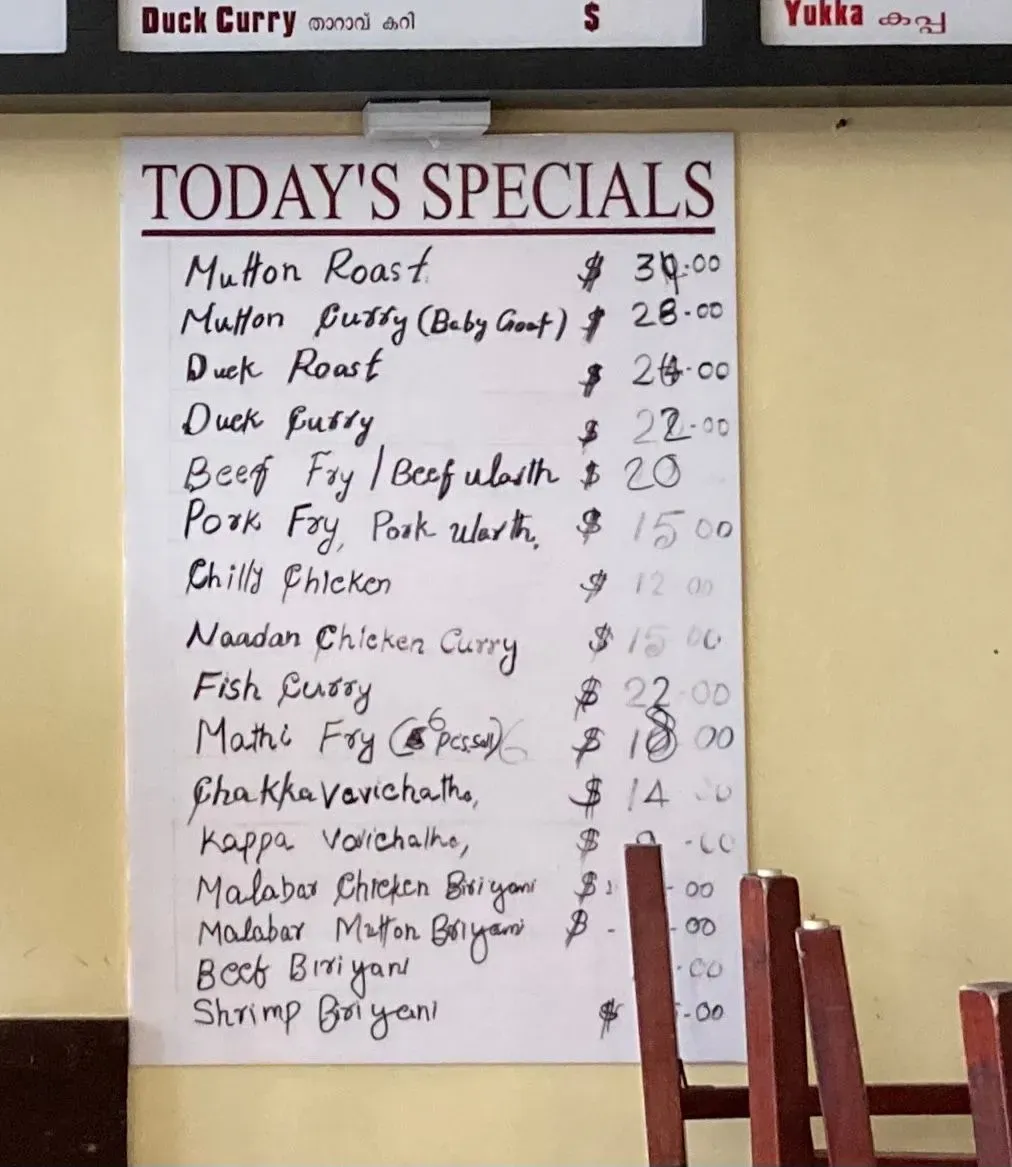 Duck Curry താറാവ് കറി $
Yukka കപ്പ
TODAY'S SPECIALS
Mutton Roast $ 30.00
Mutton Curry (Baby Goat) $ 28.00
Duck Roast $ 24.00
Duck Curry $ 22.00
Beef Fry / Beef ularth $ 20
Pork Fry, Pork ularth, $ 15 00
Chilly Chicken $ 12 00
Naadan Chicken Curry $ 15 00
Fish Curry $ 22.00
Mathi Fry (6 pcs $ 18 00
Chakka Vevichatho, $ 14
Kappa Vevichatho, $ .00
Malabar Chicken Biriyani $ .00
Malabar Mutton Biriyani $ .00
Beef Biriyani .00
Shrimp Biriyani $ .00